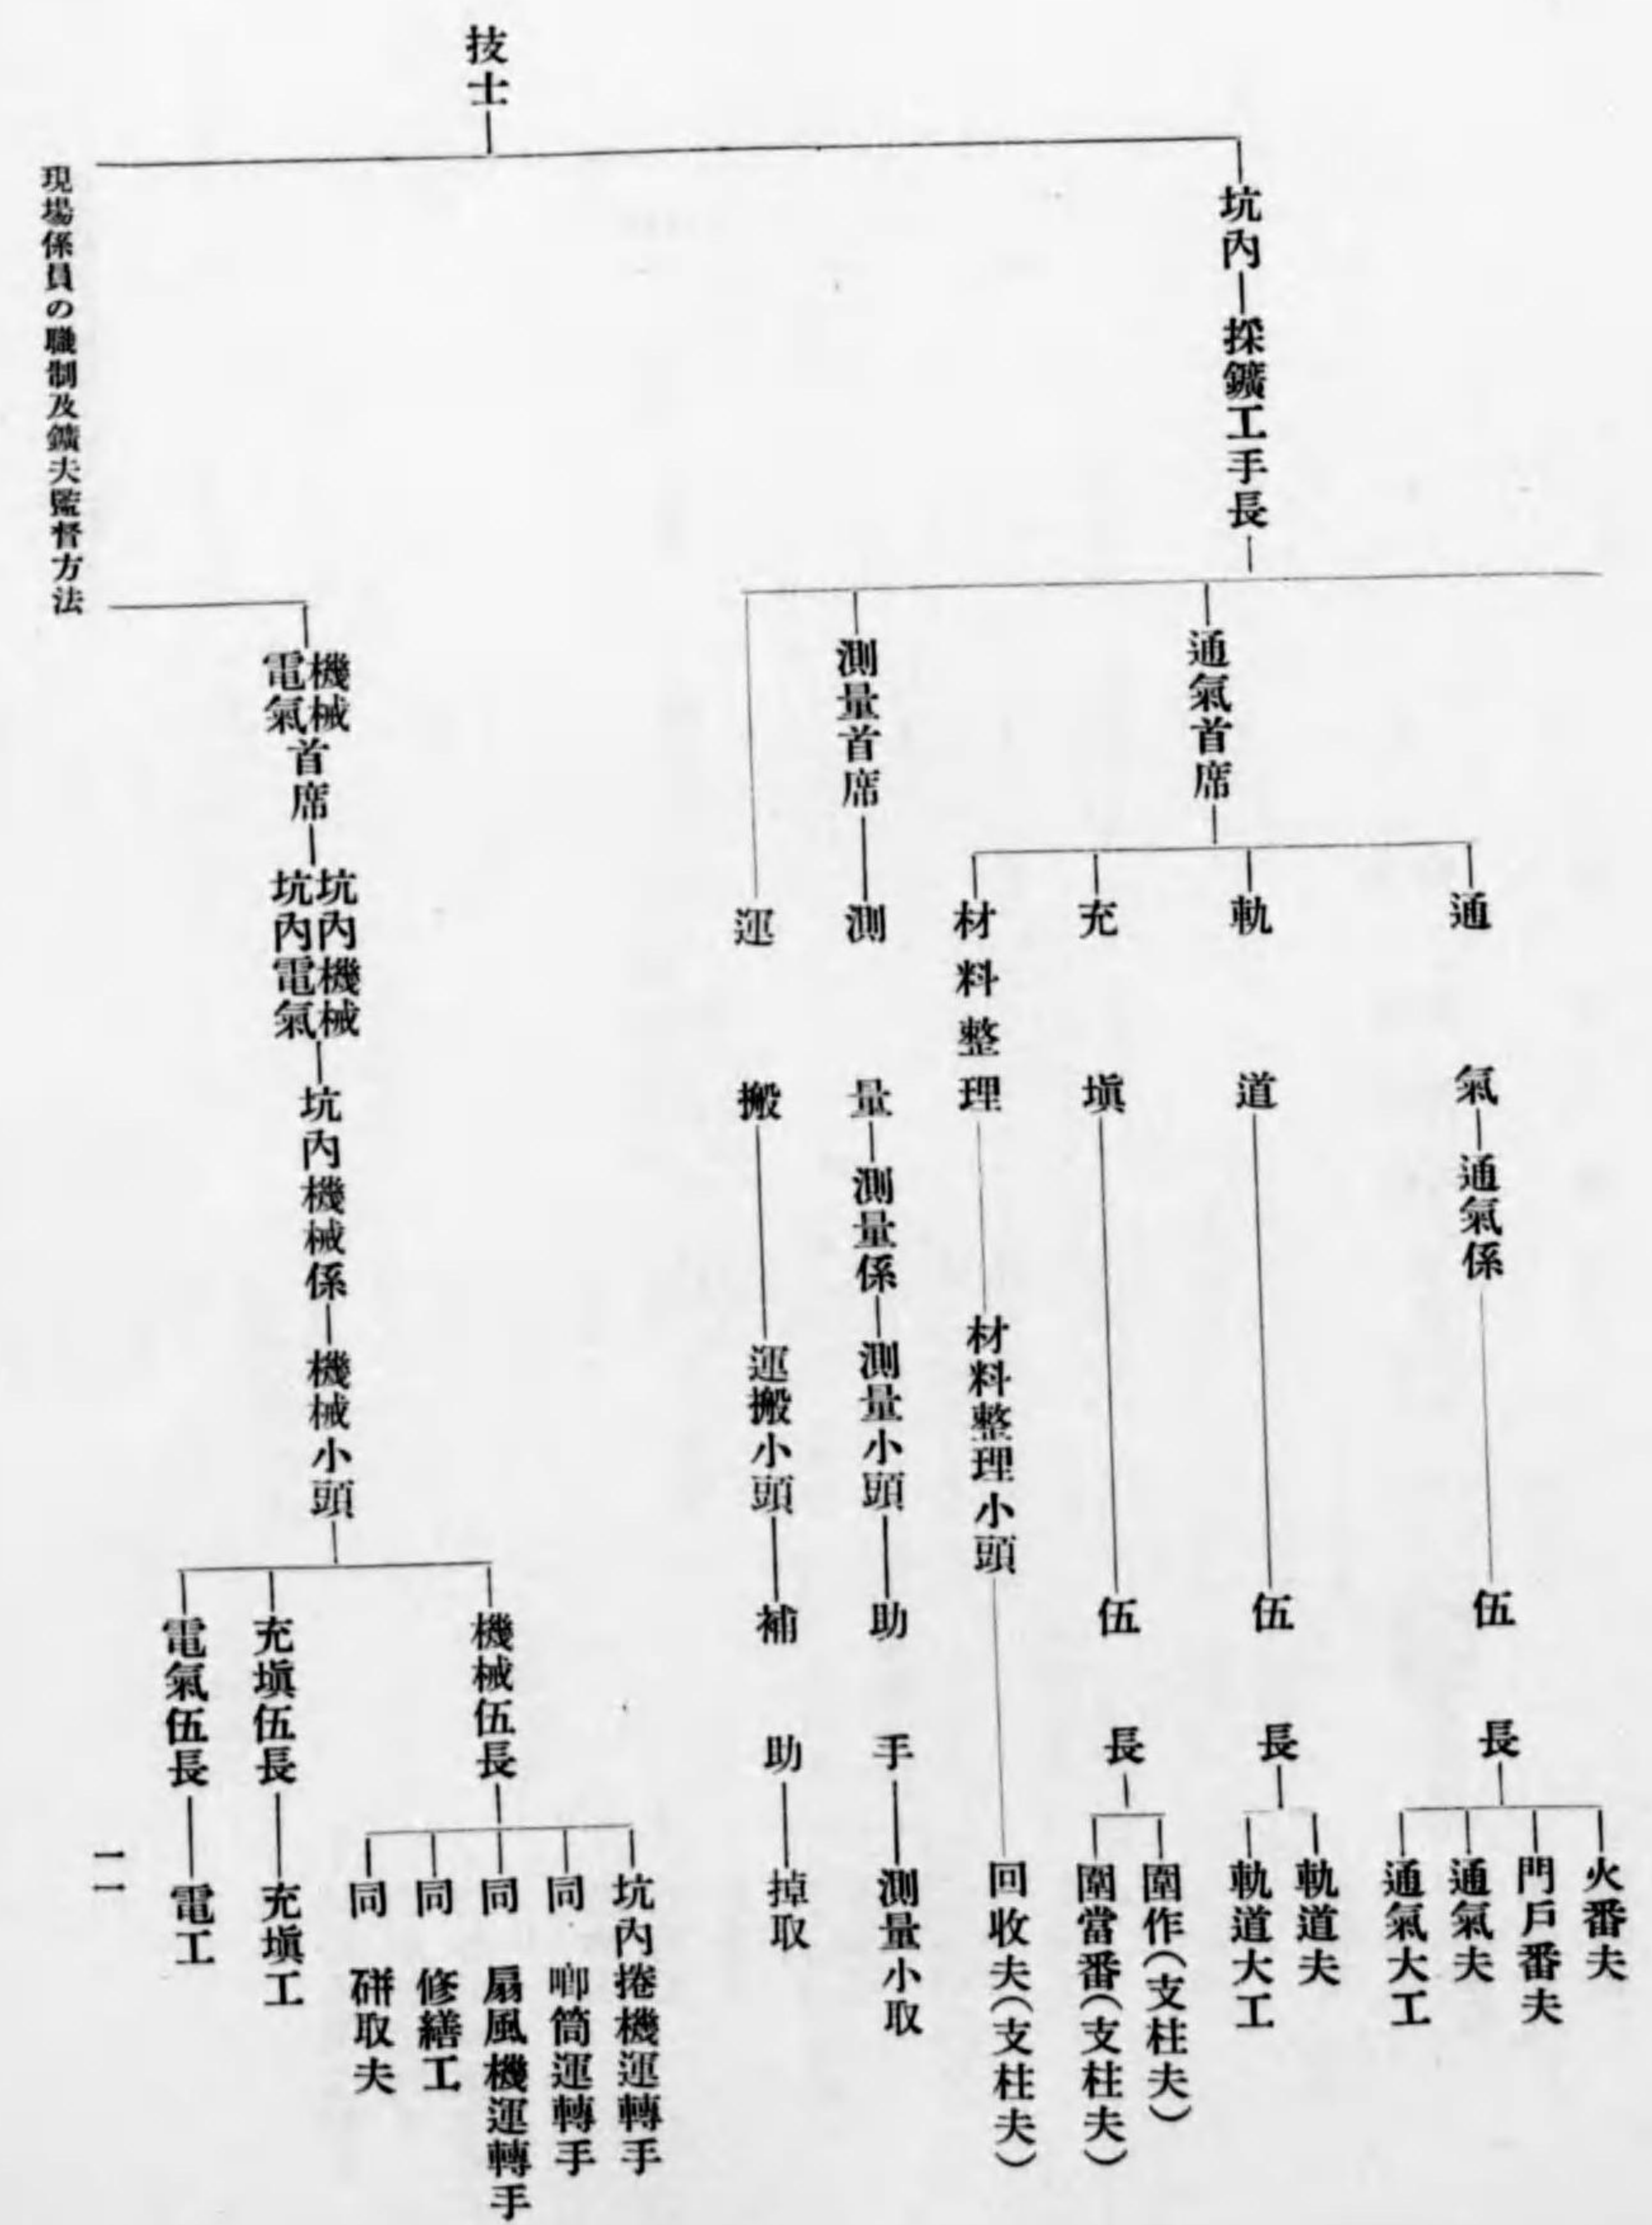 技士
坑內
採鑛工手長
通氣首席
通氣
通氣係
伍長
火番夫
門戶番夫
通氣夫
通氣大工
軌道
伍長
軌道夫
軌道大工
充塡
伍長
圍作(支柱夫)
圍當番(支柱夫)
材料整理
材料整理小頭
回收夫(支柱夫)
測量首席
測量
測量係
測量小頭
助手
測量小取
運搬
運搬小頭
補助
掉取
機械
電氣
首席
坑內機械
坑內電氣
坑內機械係
機械小頭
機械伍長
坑內捲機運轉手
同 啣筒運轉手
同 扇風機運轉手
同 修繕工
同 硑取夫
充塡伍長
充塡工
電氣伍長
電工
現場係員の職制及鑛夫監督方法
一一